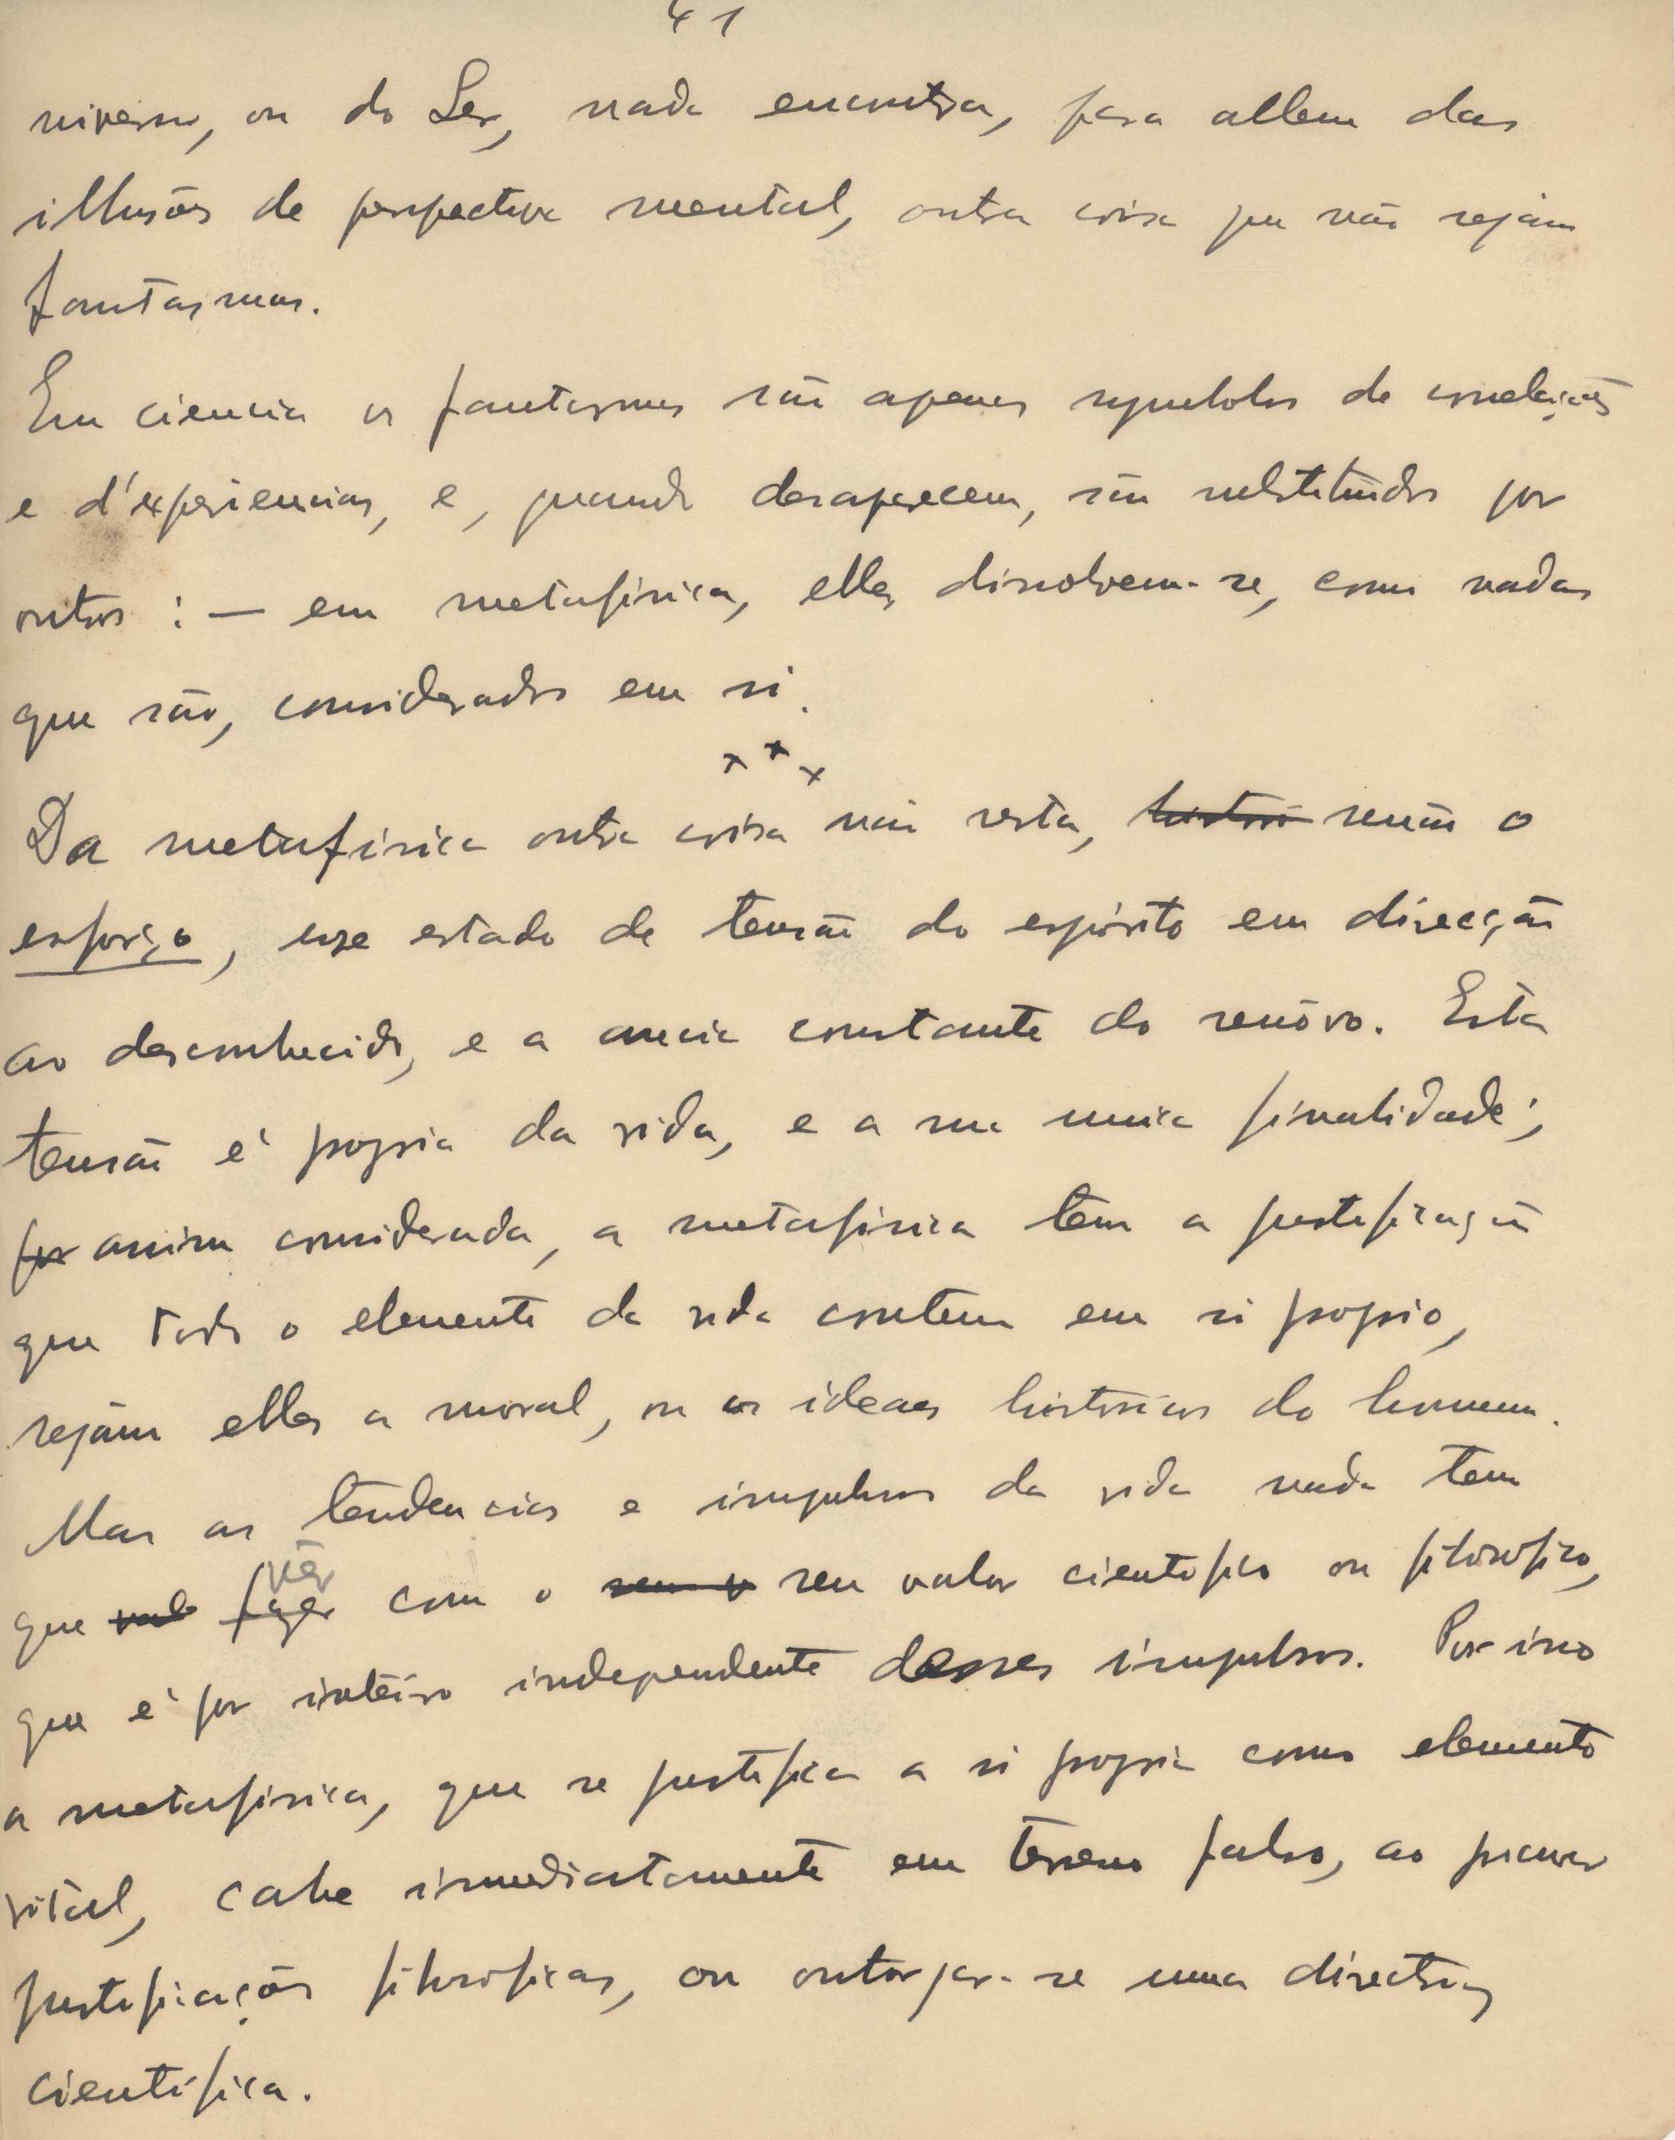 41
niverso, ou do Ser, nada encontra, para allem das
illusões de perspectiva mental, outra coisa que não sejam
fantasmas.
Em ciencia os fantasmas são apenas symbolos de correlações
e d'experiencias, e, quando desaparecem, são substituidos por
outros : — em metafisica, elles dissolvem-se, como nadas
que são, considerados em si.
x x x
Da metafisica outra coisa não resta, histori senão o
esforço, esse estado de tensão do espirito em direcção
ao desconhecido, e a ancia constante do renôvo. Esta
tensão é propria da vida, e a sua unica finalidade;
por assim considerada, a metafisica tem a justificação
que todo o elemento da vida contem em si proprio,
sejam elles a moral, ou os ideaes historicos do homem.
Mas as tendencias e impulsos da vida nada tem
vêr
que vale fazer com o seu v seu valor cientifico ou filosofico,
que é por inteiro independente desses impulsos. Por isso
a metafisica, que se justifica a si propria como elemento
vital, cahe immediatamente em terreno falso, ao procurar
justificações filosoficas, ou outorgar-se uma directriz
cientifica.